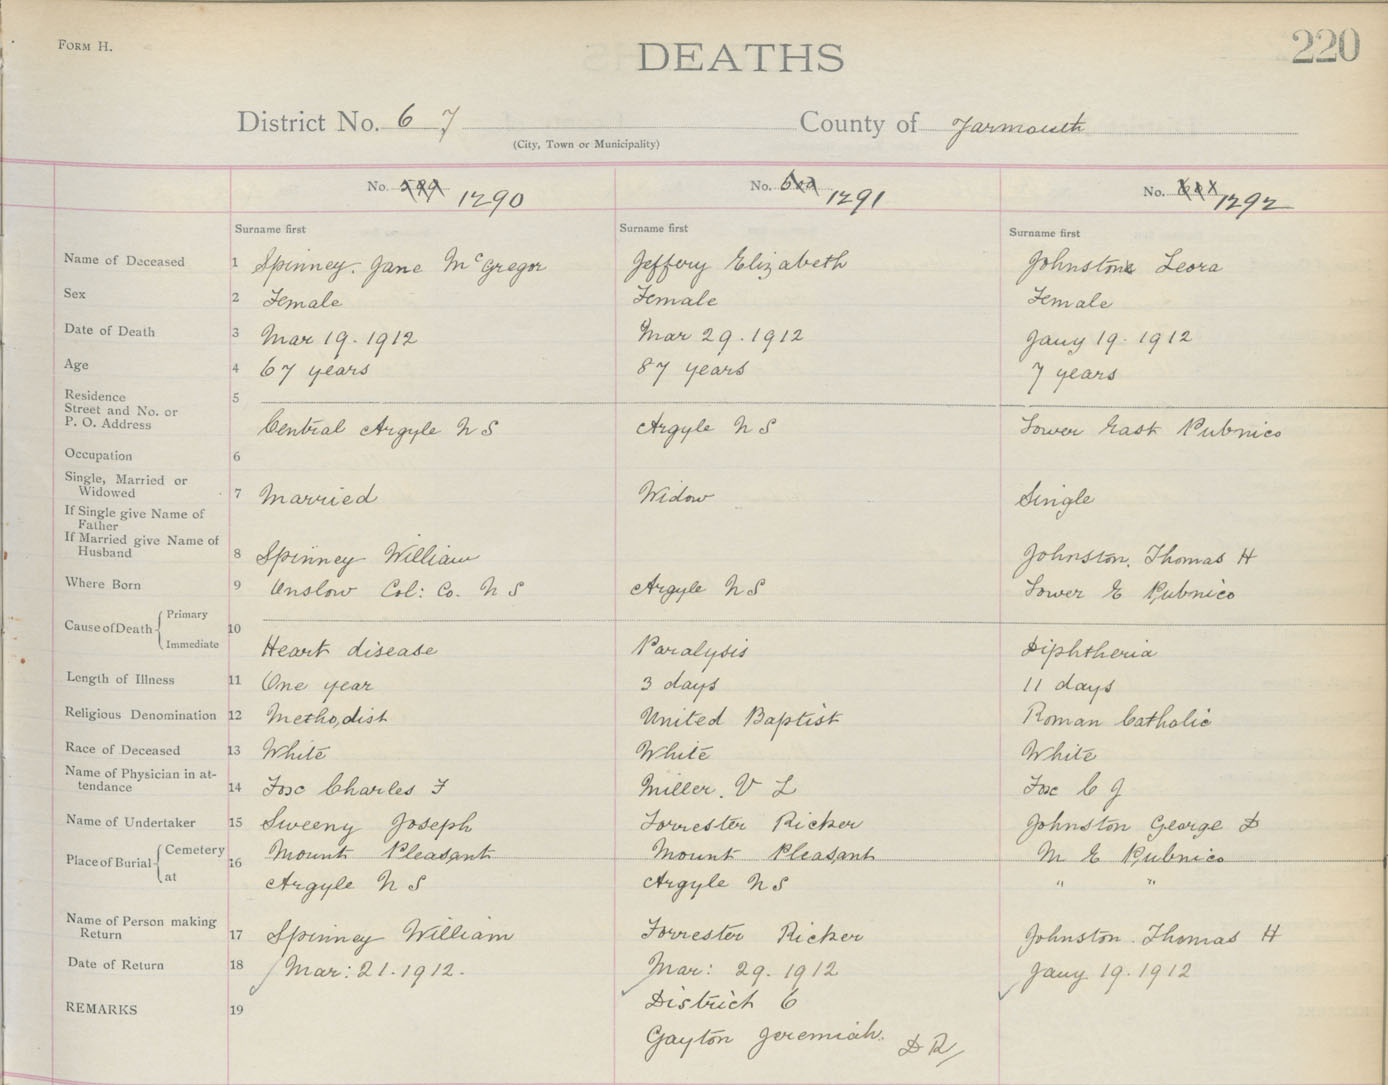 FORM H.
DEATHS
220
District No. 6 7 County of Yarmouth
(City, Town or Municipality)
No. 1290 No. 1291 No. 1292
Surname first Surname first Surname first
Name of Deceased 1 Spinney. Jane McGregor Jeffery Elizabeth Johnston Leora
Sex 2 Female Female Female
Date of Death 3 Mar 19. 1912 Mar 29. 1912 Jany 19. 1912
Age 4 67 years 87 years 7 years
Residence 5
Street and No. or
P. O. Address Central Argyle N S Argyle N S Lower East Pubnico
Occupation 6
Single, Married or
Widowed 7 Married Widow Single
If Single give Name of
Father
If Married give Name of
Husband 8 Spinney William Johnston, Thomas H
Where Born 9 Onslow Col: Co. N S Argyle N S Lower E Pubnico
Cause of Death Primary
10
Immediate Heart disease Paralysis Diphtheria
Length of Illness 11 One year 3 days 11 days
Religious Denomination 12 Methodist United Baptist Roman Catholic
Race of Deceased 13 White White White
Name of Physician in at-
tendance 14 Fox Charles F Miller. V L Fox C J
Name of Undertaker 15 Sweeny Joseph Forrester Ricker Johnston George D
Place of Burial Cemetery 16 Mount Pleasant Mount Pleasant M E Pubnico
at Argyle N S Argyle N S " "
Name of Person making
Return 17 Spinney William Forrester Ricker Johnston. Thomas H
Date of Return 18 Mar: 21. 1912. Mar: 29. 1912 Jany 19. 1912
REMARKS 19 District 6
Gayton Jeremiah. D R